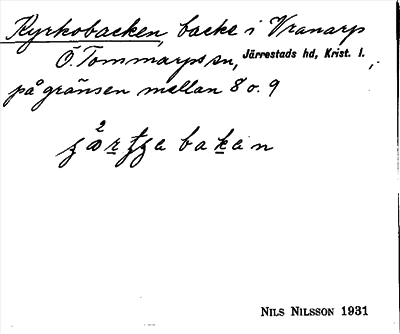 Kyrkobacken, backe i Vranarp
Ö. Tommarps sn, Järrestads hd, Krist. l.,
på gränsen mellan 8 o. 9
bakan
NILS NILSSON 1931